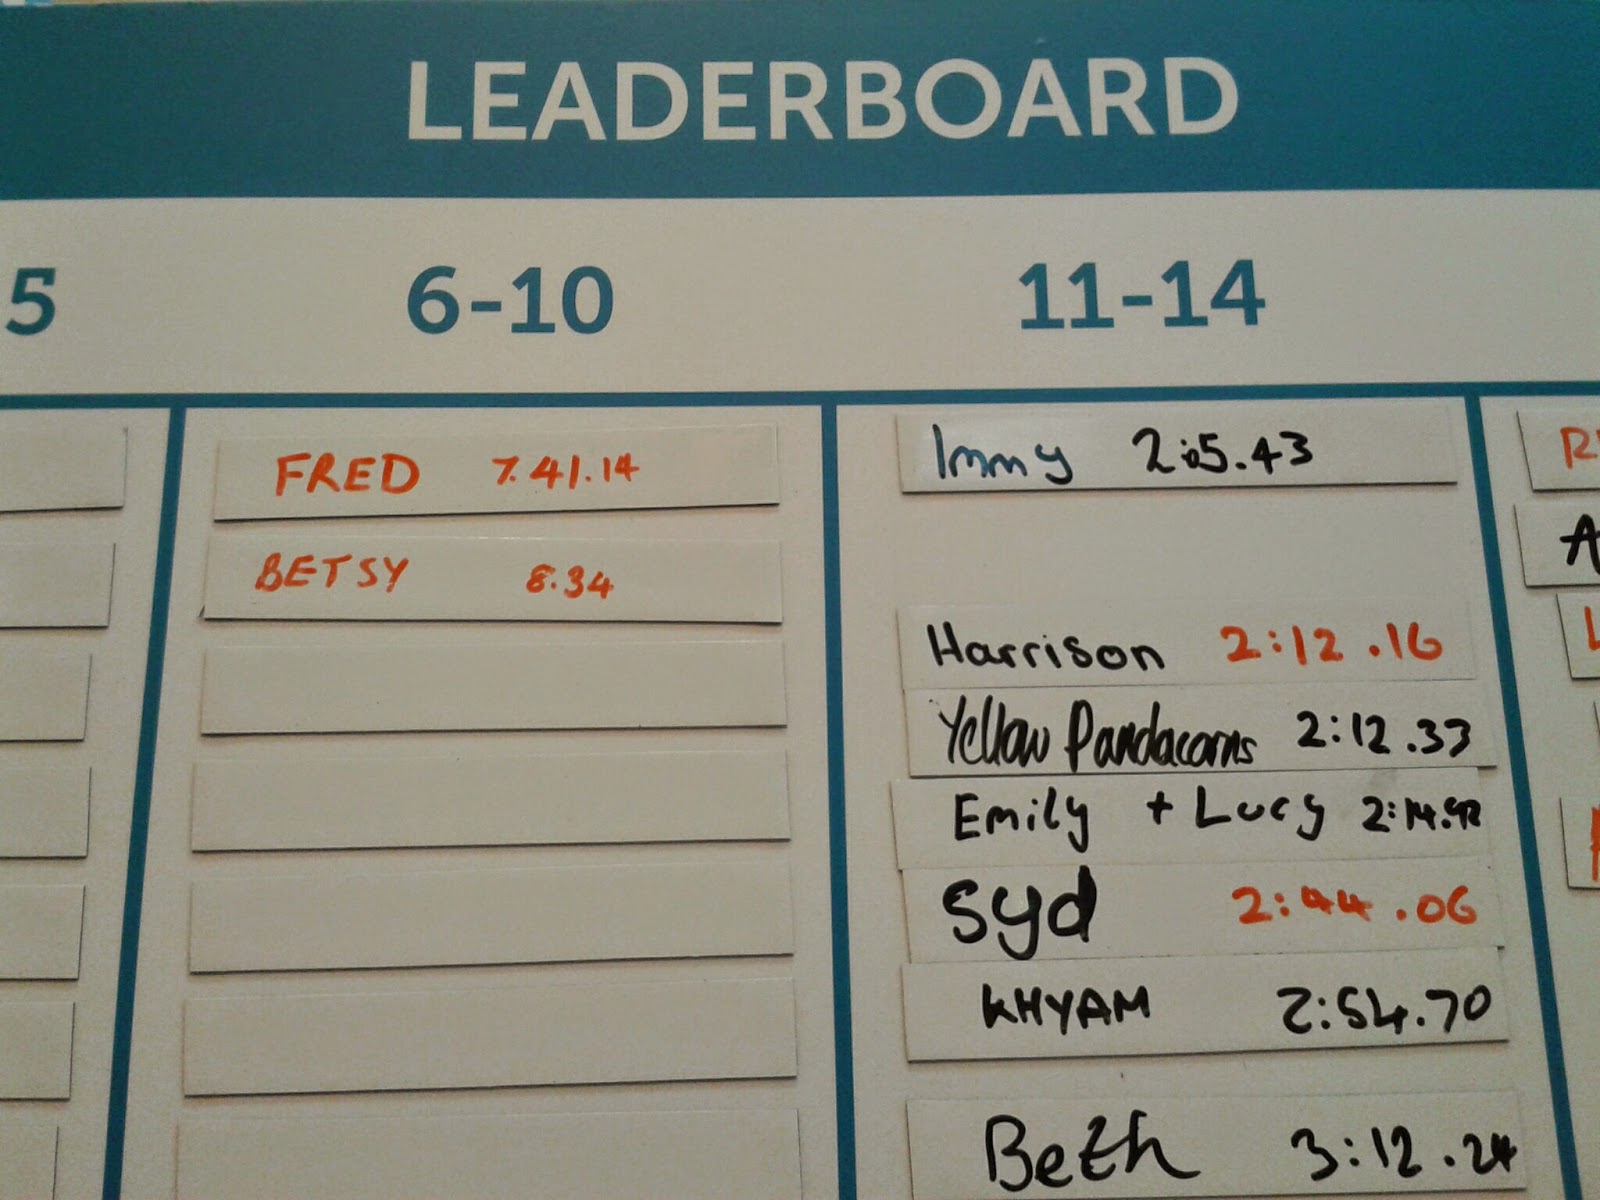 LEADERBOARD
5
6-10
11-14
FRED 7.41.14
BETSY 8.34
Immy 2:05.43
Harrison 2:12.16
Yellow Pandacorns 2:12.33
Emily + Lucy
Syd 2:44.06
KHYAM 2:54.70
Beth 3:12.24
R
A
L